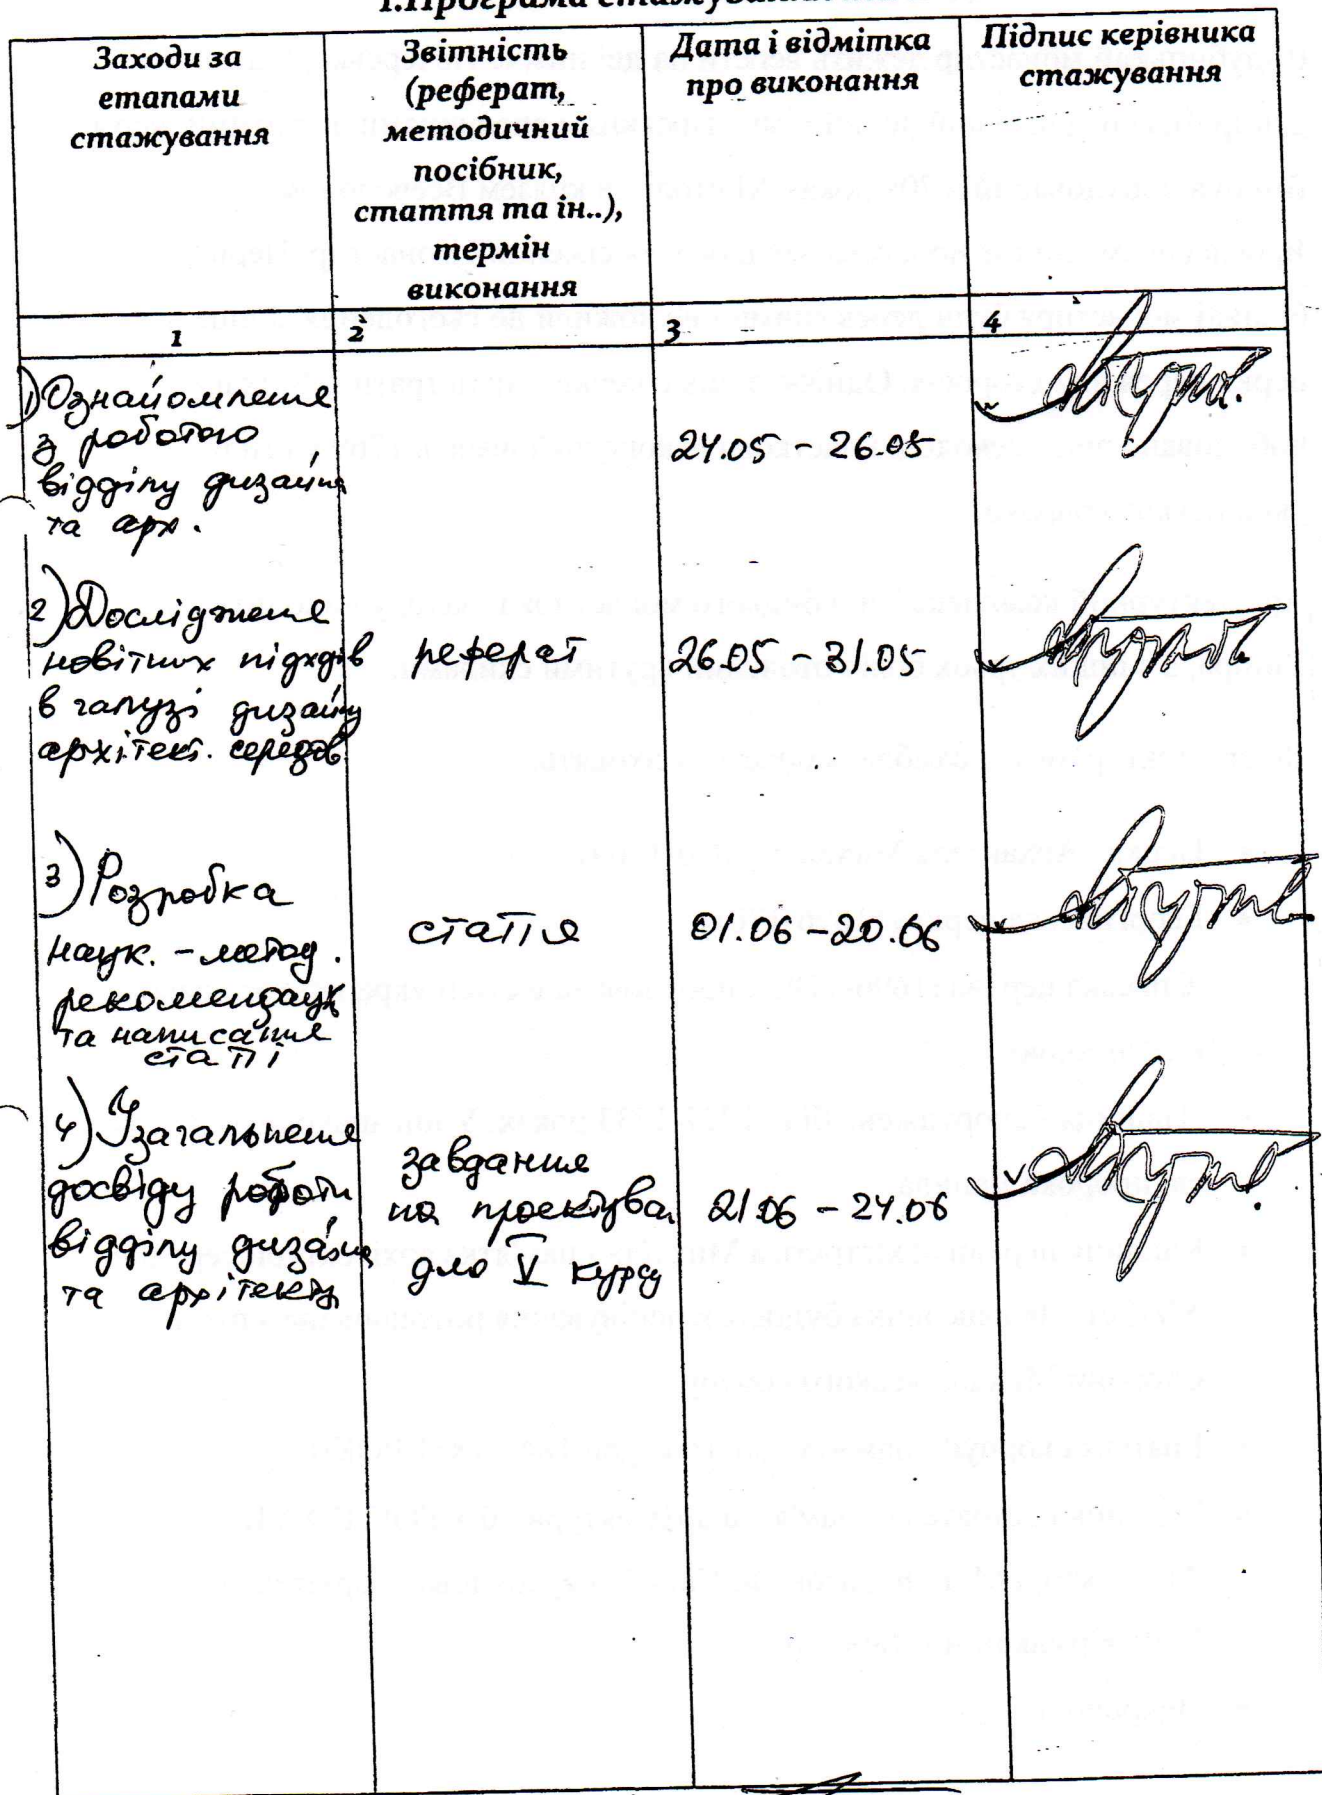 1.Програма стажування
Заходи за
етапами
стажування
Звітність
(реферат,
методичний
посібник,
стаття та ін..),
термін
виконання
Дата і відмітка
про виконання
Підпис керівника
стажування
1
2
3
4
1) Ознайомлення
з роботою
відділу дизайна
та арх.
24.05 - 26.05
2) Дослідження
новітних підходів
в галузі дизайну
архітект. середов.
реферат
26.05 - 31.05
3) Розробка
наук. - метод.
рекомендацій
та написання
статті
стаття
01.06 - 20.06
4) Узагальнення
досвіду роботи
відділу дизайна
та архітект.
завдання
на проектуван
для V курсу
21.06 - 24.06